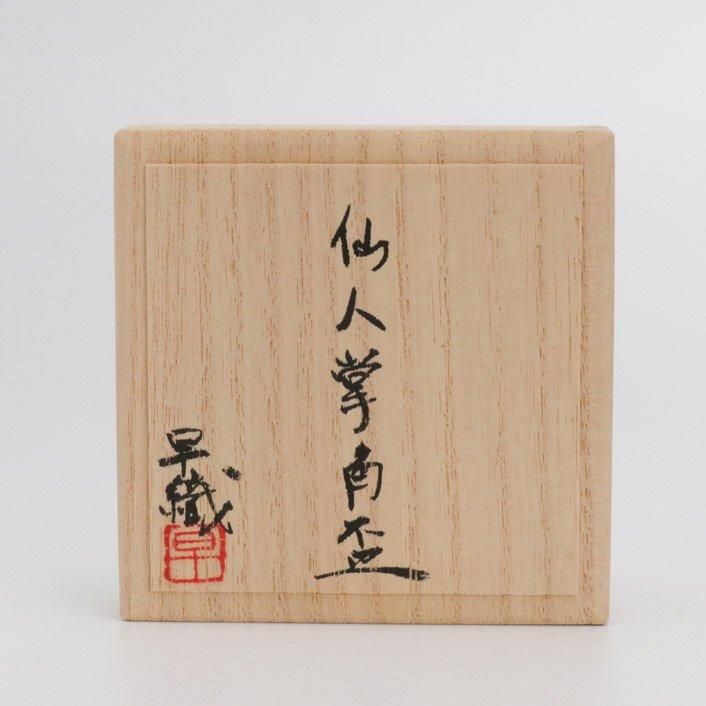 仙人掌角盃
早織
早